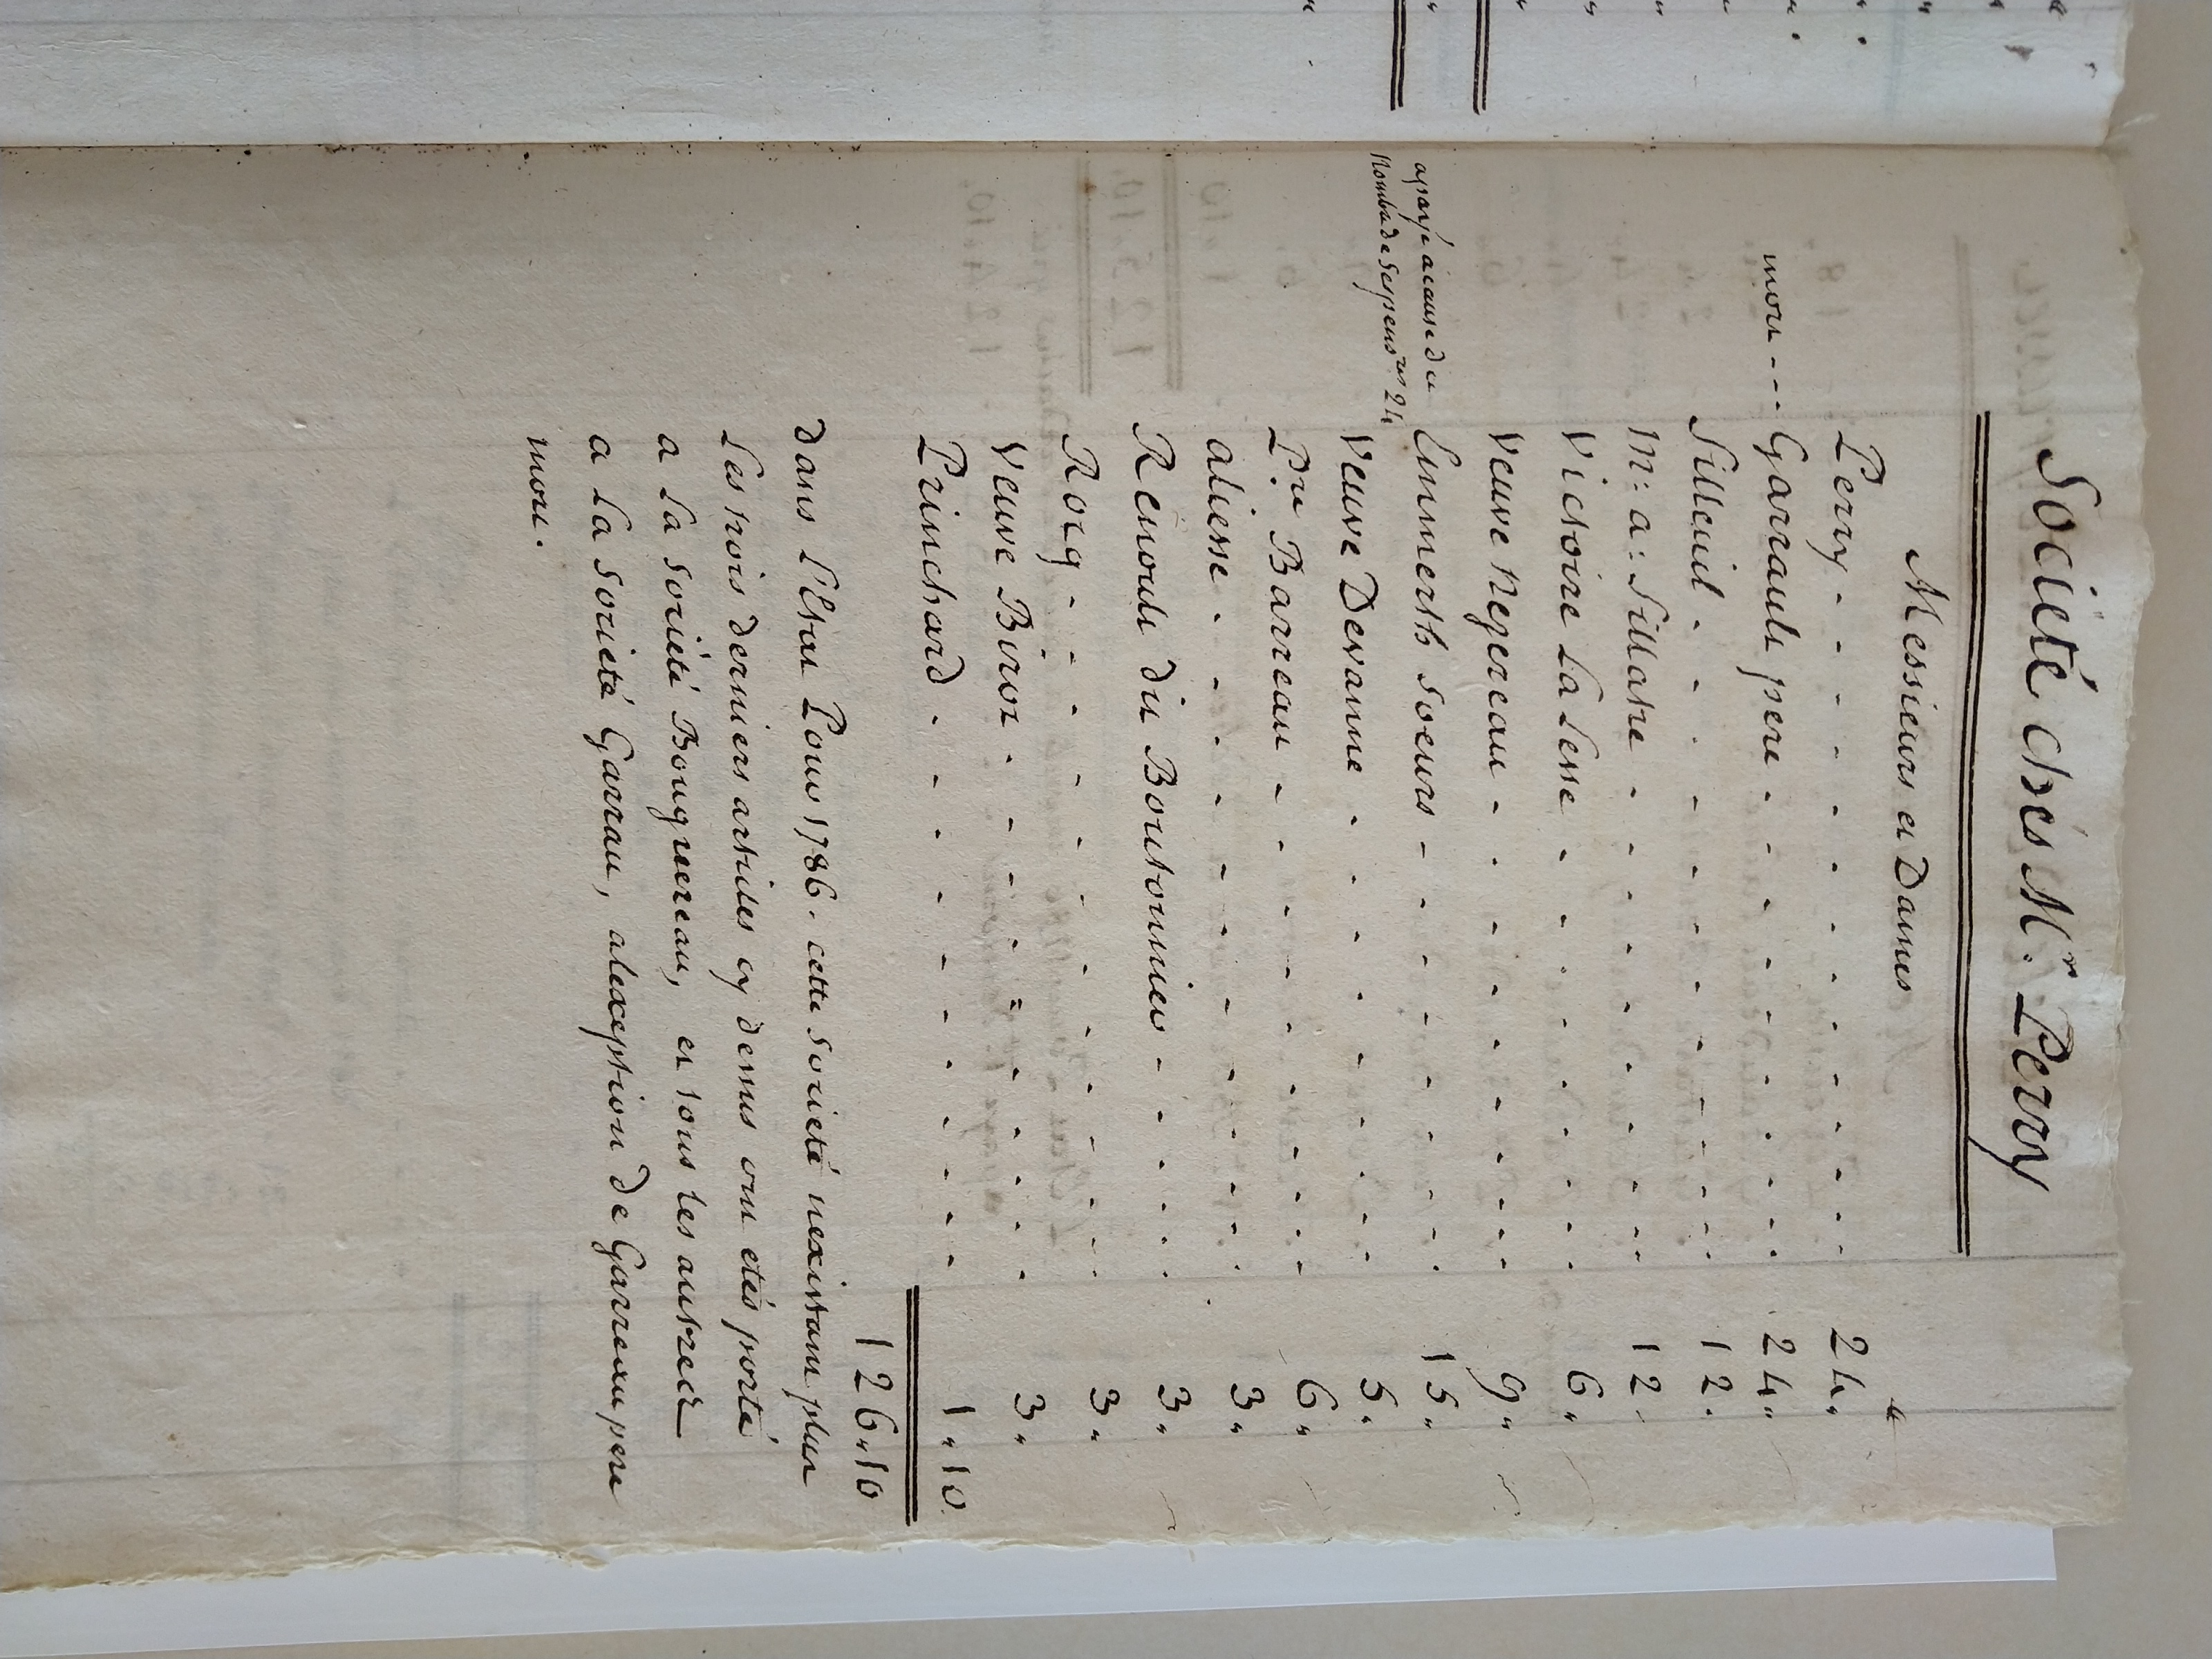 Societé chés Mr. Perry
Messieurs et Dames
₶
Perry - - - - - - - - - - - 24 "
mort - - - Garrault pere - - - - - - - - 24 "
Filleuil - - - - - - - - - - 12 .
Me: a: Fillatre - - - - - - - - 12 -
Victoire La Lesse - - - - - - - 6 "
Veuve Negereau - - - - - - - - 9 "
a payé a cause du
nombre de ses pensres 24
Emmerth Soeurs - - - - - - - - 15 "
Veuve Devanne - - - - - - - - 5 "
Pre Barreau - - - - - - - - - 6 "
aliesse - - - - - - - - - - 3 "
Renoult du Boutonnier - - - - - 3 "
Rocq - - - - - - - - - - - 3 "
Veuve Birot - - - - = - - - - 3 "
Princhard - - - - - - - - - - 1 " 10
126 " 10
dans l'Etat Pour 1786. cette societé nexistant plus
Les trois derniers articles cy dessus ont etés porté
a La societé Bouguereau, et tous les autres
a La societé Garrau, alexception de Garreau pere
mort.